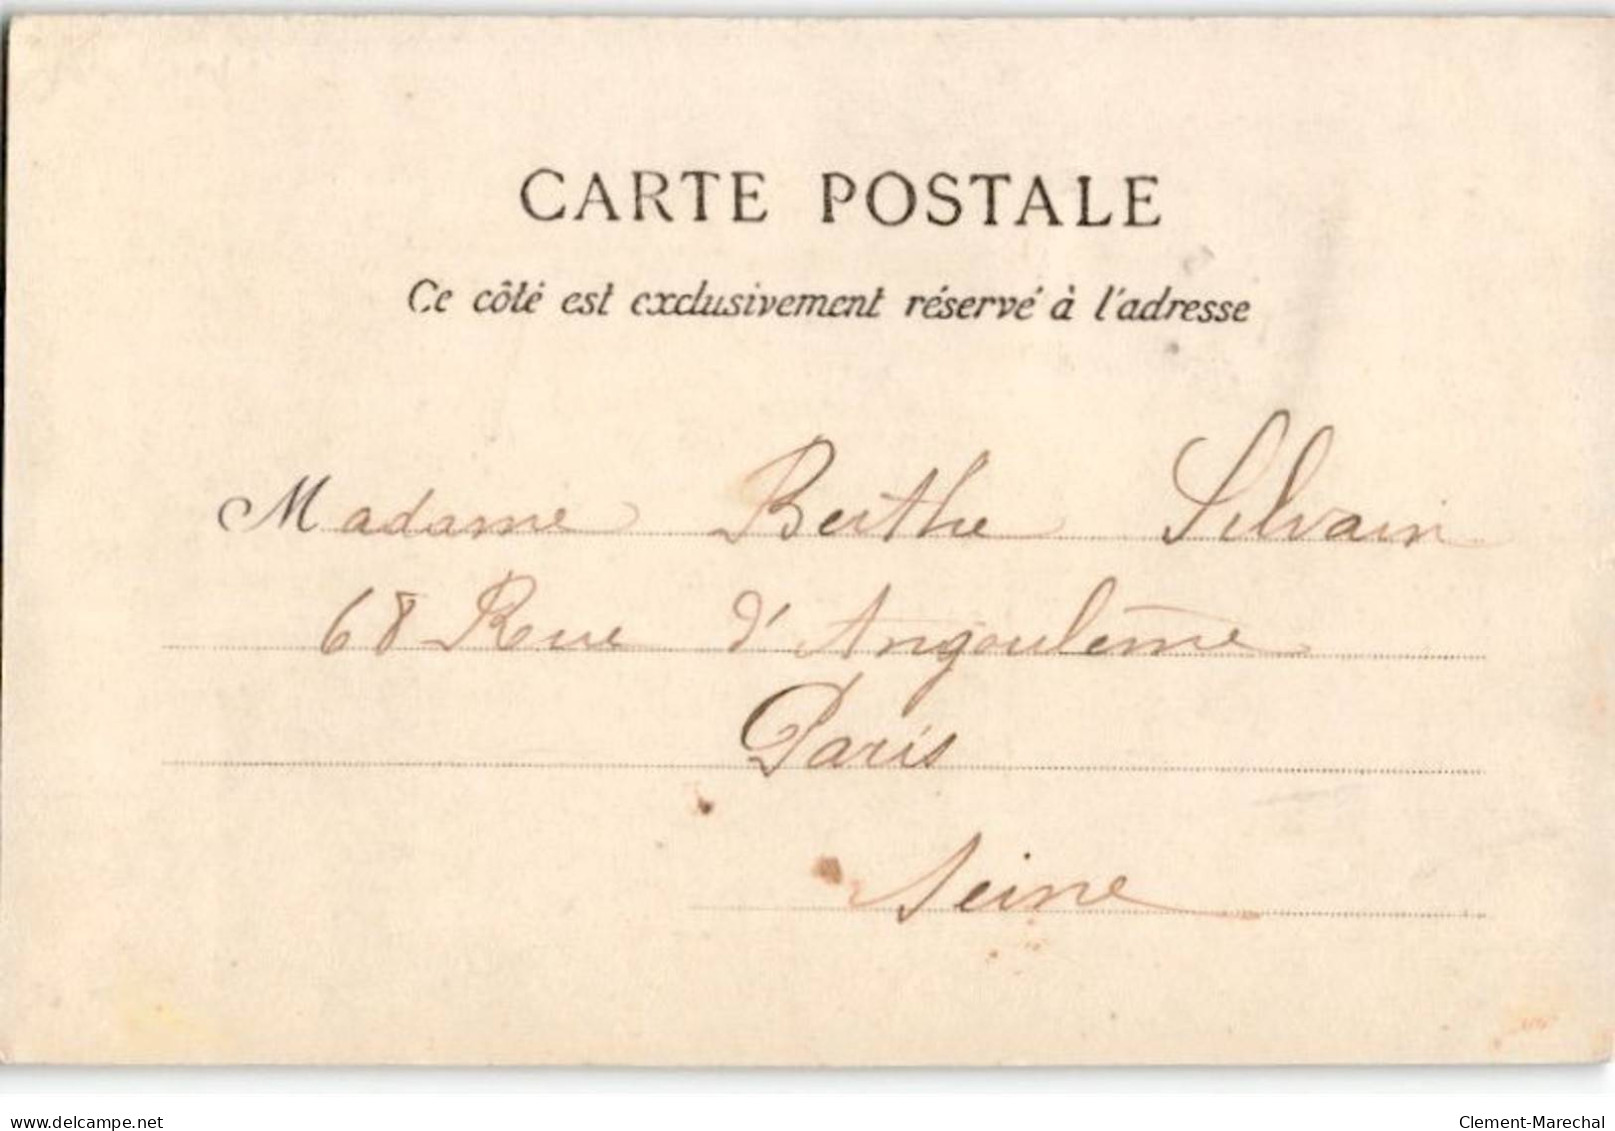 CARTE POSTALE
Ce côté est exclusivement réservé à l'adresse
Madame Berthe Silvain
68 Rue d'Angoulême
Paris
Seine
www.delcampe.net
Clement-Marechal